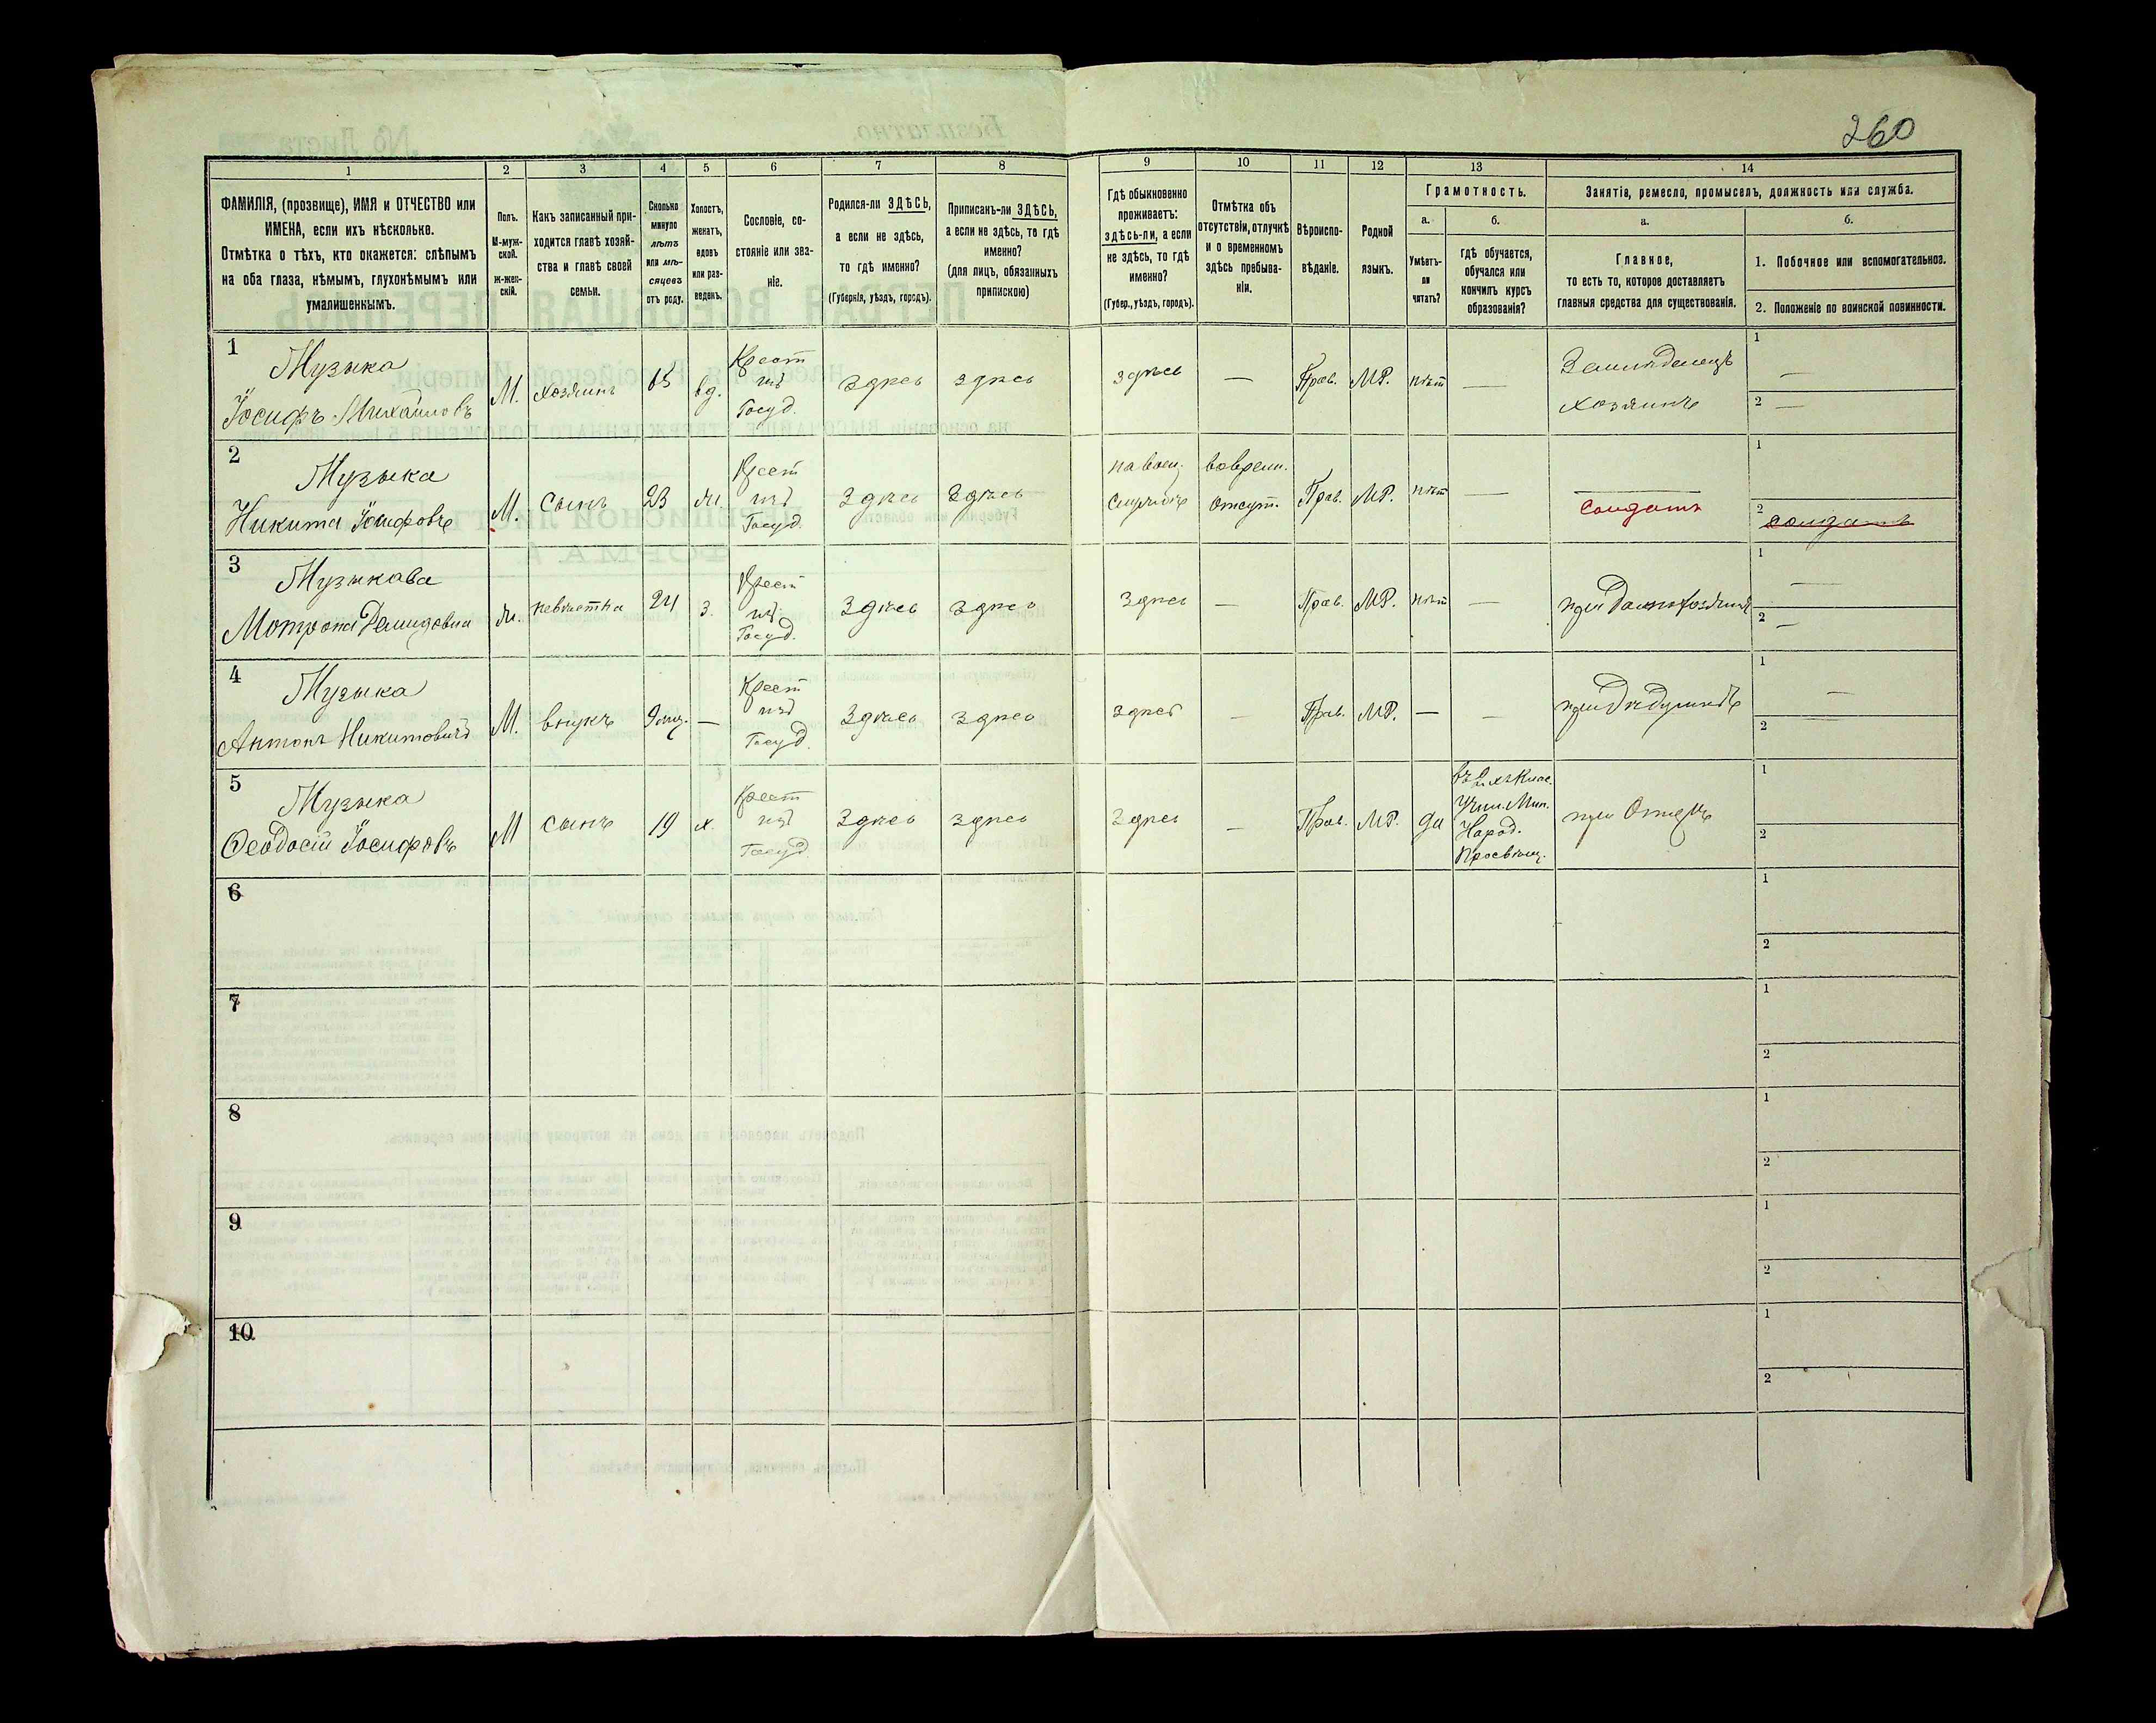 260
1 2 3 4 5 6 7 8 9 10 11 12 13 14
ФАМИЛІЯ, (прозвище), ИМЯ и ОТЧЕСТВО или
ИМЕНА, если ихъ нѣсколько.
Отмѣтка о тѣхъ, кто окажется: слѣпымъ
на оба глаза, нѣмымъ, глухонѣмымъ или
умалишеннымъ.
Полъ.
М-муж-
ской.
ж-жен-
скій.
Какъ записанный при-
ходится главѣ хозяй-
ства и главѣ своей
семьи.
Сколько
минуло
лѣтъ
или мѣ-
сяцевъ
отъ роду.
Холостъ,
женатъ,
вдовъ
или раз-
веденъ.
Сословіе, со-
стояніе или зва-
ніе.
Родился-ли ЗДѢСЬ,
а если не здѣсь,
то гдѣ именно?
(Губернія, уѣздъ, городъ).
Приписанъ-ли ЗДѢСЬ,
а если не здѣсь, то гдѣ
именно?
(для лицъ, обязанныхъ
припискою)
Гдѣ обыкновенно
проживаетъ:
здѣсь-ли, а если
не здѣсь, то гдѣ
именно?
(Губер., уѣздъ, городъ).
Отмѣтка объ
отсутствіи, отлучкѣ
и о временномъ
здѣсь пребыва-
ніи.
Вѣроиспо-
вѣданіе.
Родной
языкъ.
Грамотность.
а.
Умѣетъ-
ли
читать?
б.
гдѣ обучается,
обучался или
кончилъ курсъ
образованія?
Занятія, ремесло, промыселъ, должность или служба.
а.
Главное,
то есть то, которое доставляетъ
главныя средства для существованія.
б.
1. Побочное или вспомогательное.
2. Положеніе по воинской повинности.
1
Музыка
Іосифъ Михаиловъ
М.
хозяинъ
65
вд.
Крест
изъ
Госуд.
Здѣсь
здѣсь
здѣсь
—
Прав.
МР.
нѣтъ
—
Земледѣлецъ
хозяинъ
1 —
2 —
2
Музыка
Никита Іосифовъ
М.
Сынъ
23
ж.
Крест
изъ
Госуд.
Здѣсь
Здѣсь
на воен.
Службѣ
во врем.
отсут.
Прав.
МР.
нѣтъ
—
солдатъ
1
2 солдатъ
3
Музыкава
Мотрона Демидовна
ж.
невѣстка
24
з.
Крест
изъ
Госуд.
Здѣсь
Здѣсь
Здѣсь
—
Прав.
МР.
нѣтъ
—
при
1 —
2 —
4
Музыка
Антонъ Никитовичъ
М.
внукъ
9 мѣц.
—
Крест
изъ
Госуд.
Здѣсь
Здѣсь
Здѣсь
—
Прав.
МР.
—
—
при Дѣдушкѣ
1 —
2
5
Музыка
Ѳеодосій Іосифовъ
М
сынъ
19
х.
Крест
изъ
Госуд.
Здѣсь
Здѣсь
Здѣсь
—
Прав.
МР.
да
Учил. Мин.
Народ.
Просвѣщ.
при Отцѣ
1
2
6
1
2
7
1
2
8
1
2
9
1
2
10
1
2